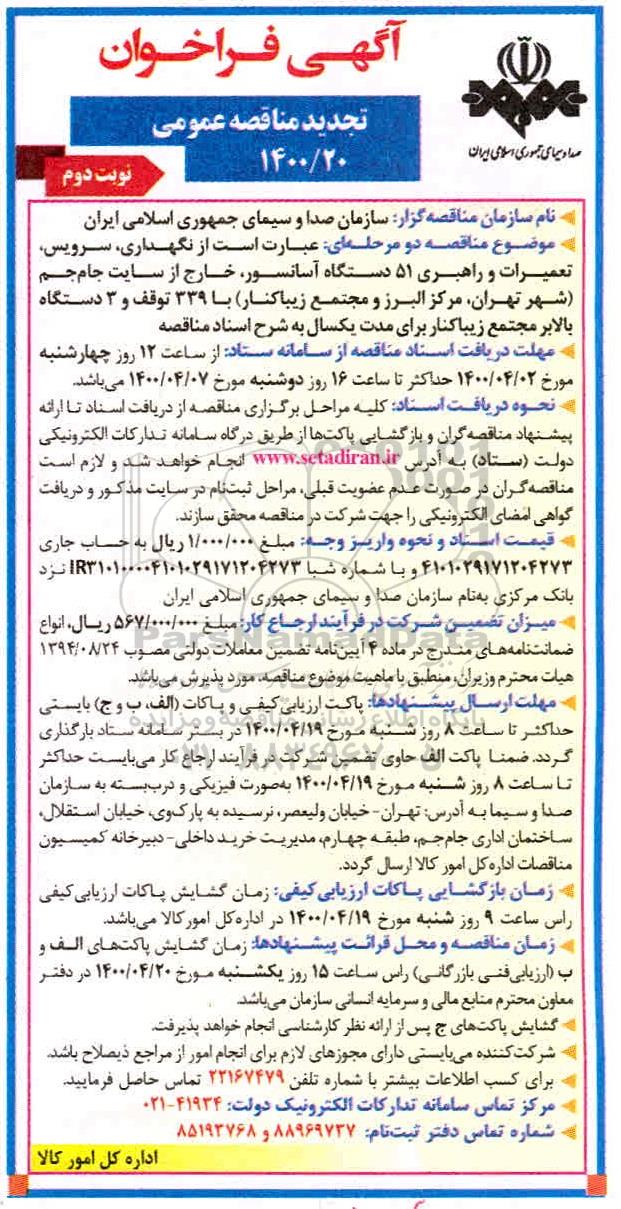 آگهی فراخوان
صدا و سیمای جمهوری اسلامی ایران
تجدید مناقصه عمومی
۱۴۰۰/۲۰
نوبت دوم
نام سازمان مناقصه‌گزار: سازمان صدا و سیمای جمهوری اسلامی ایران
موضوع مناقصه دو مرحله‌ای: عبارت است از نگهداری، سرویس،
تعمیرات و راهبری ۵۱ دستگاه آسانسور، خارج از سایت جام‌جم
(شهر تهران، مرکز البرز و مجتمع زیباکنار) با ۳۳۹ توقف و ۳ دستگاه
بالابر مجتمع زیباکنار برای مدت یکسال به شرح اسناد مناقصه
مهلت دریافت اسناد مناقصه از سامانه ستاد: از ساعت ۱۲ روز چهارشنبه
مورخ ۱۴۰۰/۰۴/۰۲ حداکثر تا ساعت ۱۶ روز دوشنبه مورخ ۱۴۰۰/۰۴/۰۷ می‌باشد.
نحوه دریافت اسناد: کلیه مراحل برگزاری مناقصه از دریافت اسناد تا ارائه
پیشنهاد مناقصه‌گران و بازگشایی پاکت‌ها از طریق درگاه سامانه تدارکات الکترونیکی
دولت (ستاد) به آدرس www.setadiran.ir انجام خواهد شد و لازم است
مناقصه‌گران در صورت عدم عضویت قبلی، مراحل ثبت‌نام در سایت مذکور و دریافت
گواهی امضای الکترونیکی را جهت شرکت در مناقصه محقق سازند.
قیمت اسناد و نحوه واریز وجه: مبلغ ۱/۰۰۰/۰۰۰ ریال به حساب جاری
۴۱۰۱۰۲۹۱۷۱۲۰۴۲۷۳ و با شماره شبا IR۳۱۰۱۰۰۰۰۴۱۰۱۰۲۹۱۷۱۲۰۴۲۷۳ نزد
بانک مرکزی به‌نام سازمان صدا و سیمای جمهوری اسلامی ایران
میزان تضمین شرکت در فرآیند ارجاع کار: مبلغ ۵۶۷/۰۰۰/۰۰۰ ریال، انواع
ضمانت‌نامه‌های مندرج در ماده ۴ آیین‌نامه تضمین معاملات دولتی مصوب ۱۳۹۴/۰۸/۲۴
هیات محترم وزیران، منطبق با ماهیت موضوع مناقصه، مورد پذیرش می‌باشد.
مهلت ارسال پیشنهادها: پاکت ارزیابی‌کیفی و پاکات (الف، ب و ج) بایستی
حداکثر تا ساعت ۸ روز شنبه مورخ ۱۴۰۰/۰۴/۱۹ در بستر سامانه ستاد بارگذاری
گردد. ضمنا پاکت الف حاوی تضمین شرکت در فرآیند ارجاع کار می‌بایست حداکثر
تا ساعت ۸ روز شنبه مورخ ۱۴۰۰/۰۴/۱۹ به‌صورت فیزیکی و درب‌بسته به سازمان
صدا و سیما به آدرس: تهران- خیابان ولیعصر، نرسیده به پارک‌وی، خیابان استقلال،
ساختمان اداری جام‌جم، طبقه چهارم، مدیریت خرید داخلی- دبیرخانه کمیسیون
مناقصات اداره‌کل امور کالا ارسال گردد.
زمان بازگشایی پاکات ارزیابی‌کیفی: زمان گشایش پاکات ارزیابی‌کیفی
راس ساعت ۹ روز شنبه مورخ ۱۴۰۰/۰۴/۱۹ در اداره‌کل امور کالا می‌باشد.
زمان مناقصه و محل قرائت پیشنهادها: زمان گشایش پاکت‌های الف و
ب (ارزیابی‌فنی بازرگانی) راس ساعت ۱۵ روز یکشنبه مورخ ۱۴۰۰/۰۴/۲۰ در دفتر
معاون محترم منابع مالی و سرمایه انسانی سازمان می‌باشد.
گشایش پاکت‌های ج پس از ارائه نظر کارشناسی انجام خواهد پذیرفت.
شرکت‌کننده می‌بایستی دارای مجوزهای لازم برای انجام امور از مراجع ذیصلاح باشد.
برای کسب اطلاعات بیشتر با شماره تلفن ۲۲۱۶۷۴۷۹ تماس حاصل فرمایید.
مرکز تماس سامانه تدارکات الکترونیک دولت: ۴۱۹۳۴-۰۲۱
شماره تماس دفتر ثبت‌نام: ۸۸۹۶۹۷۳۷ و ۸۵۱۹۳۷۶۸
اداره کل امور کالا
ParsNamadData
پایگاه اطلاع رسانی مناقصه و مزایده